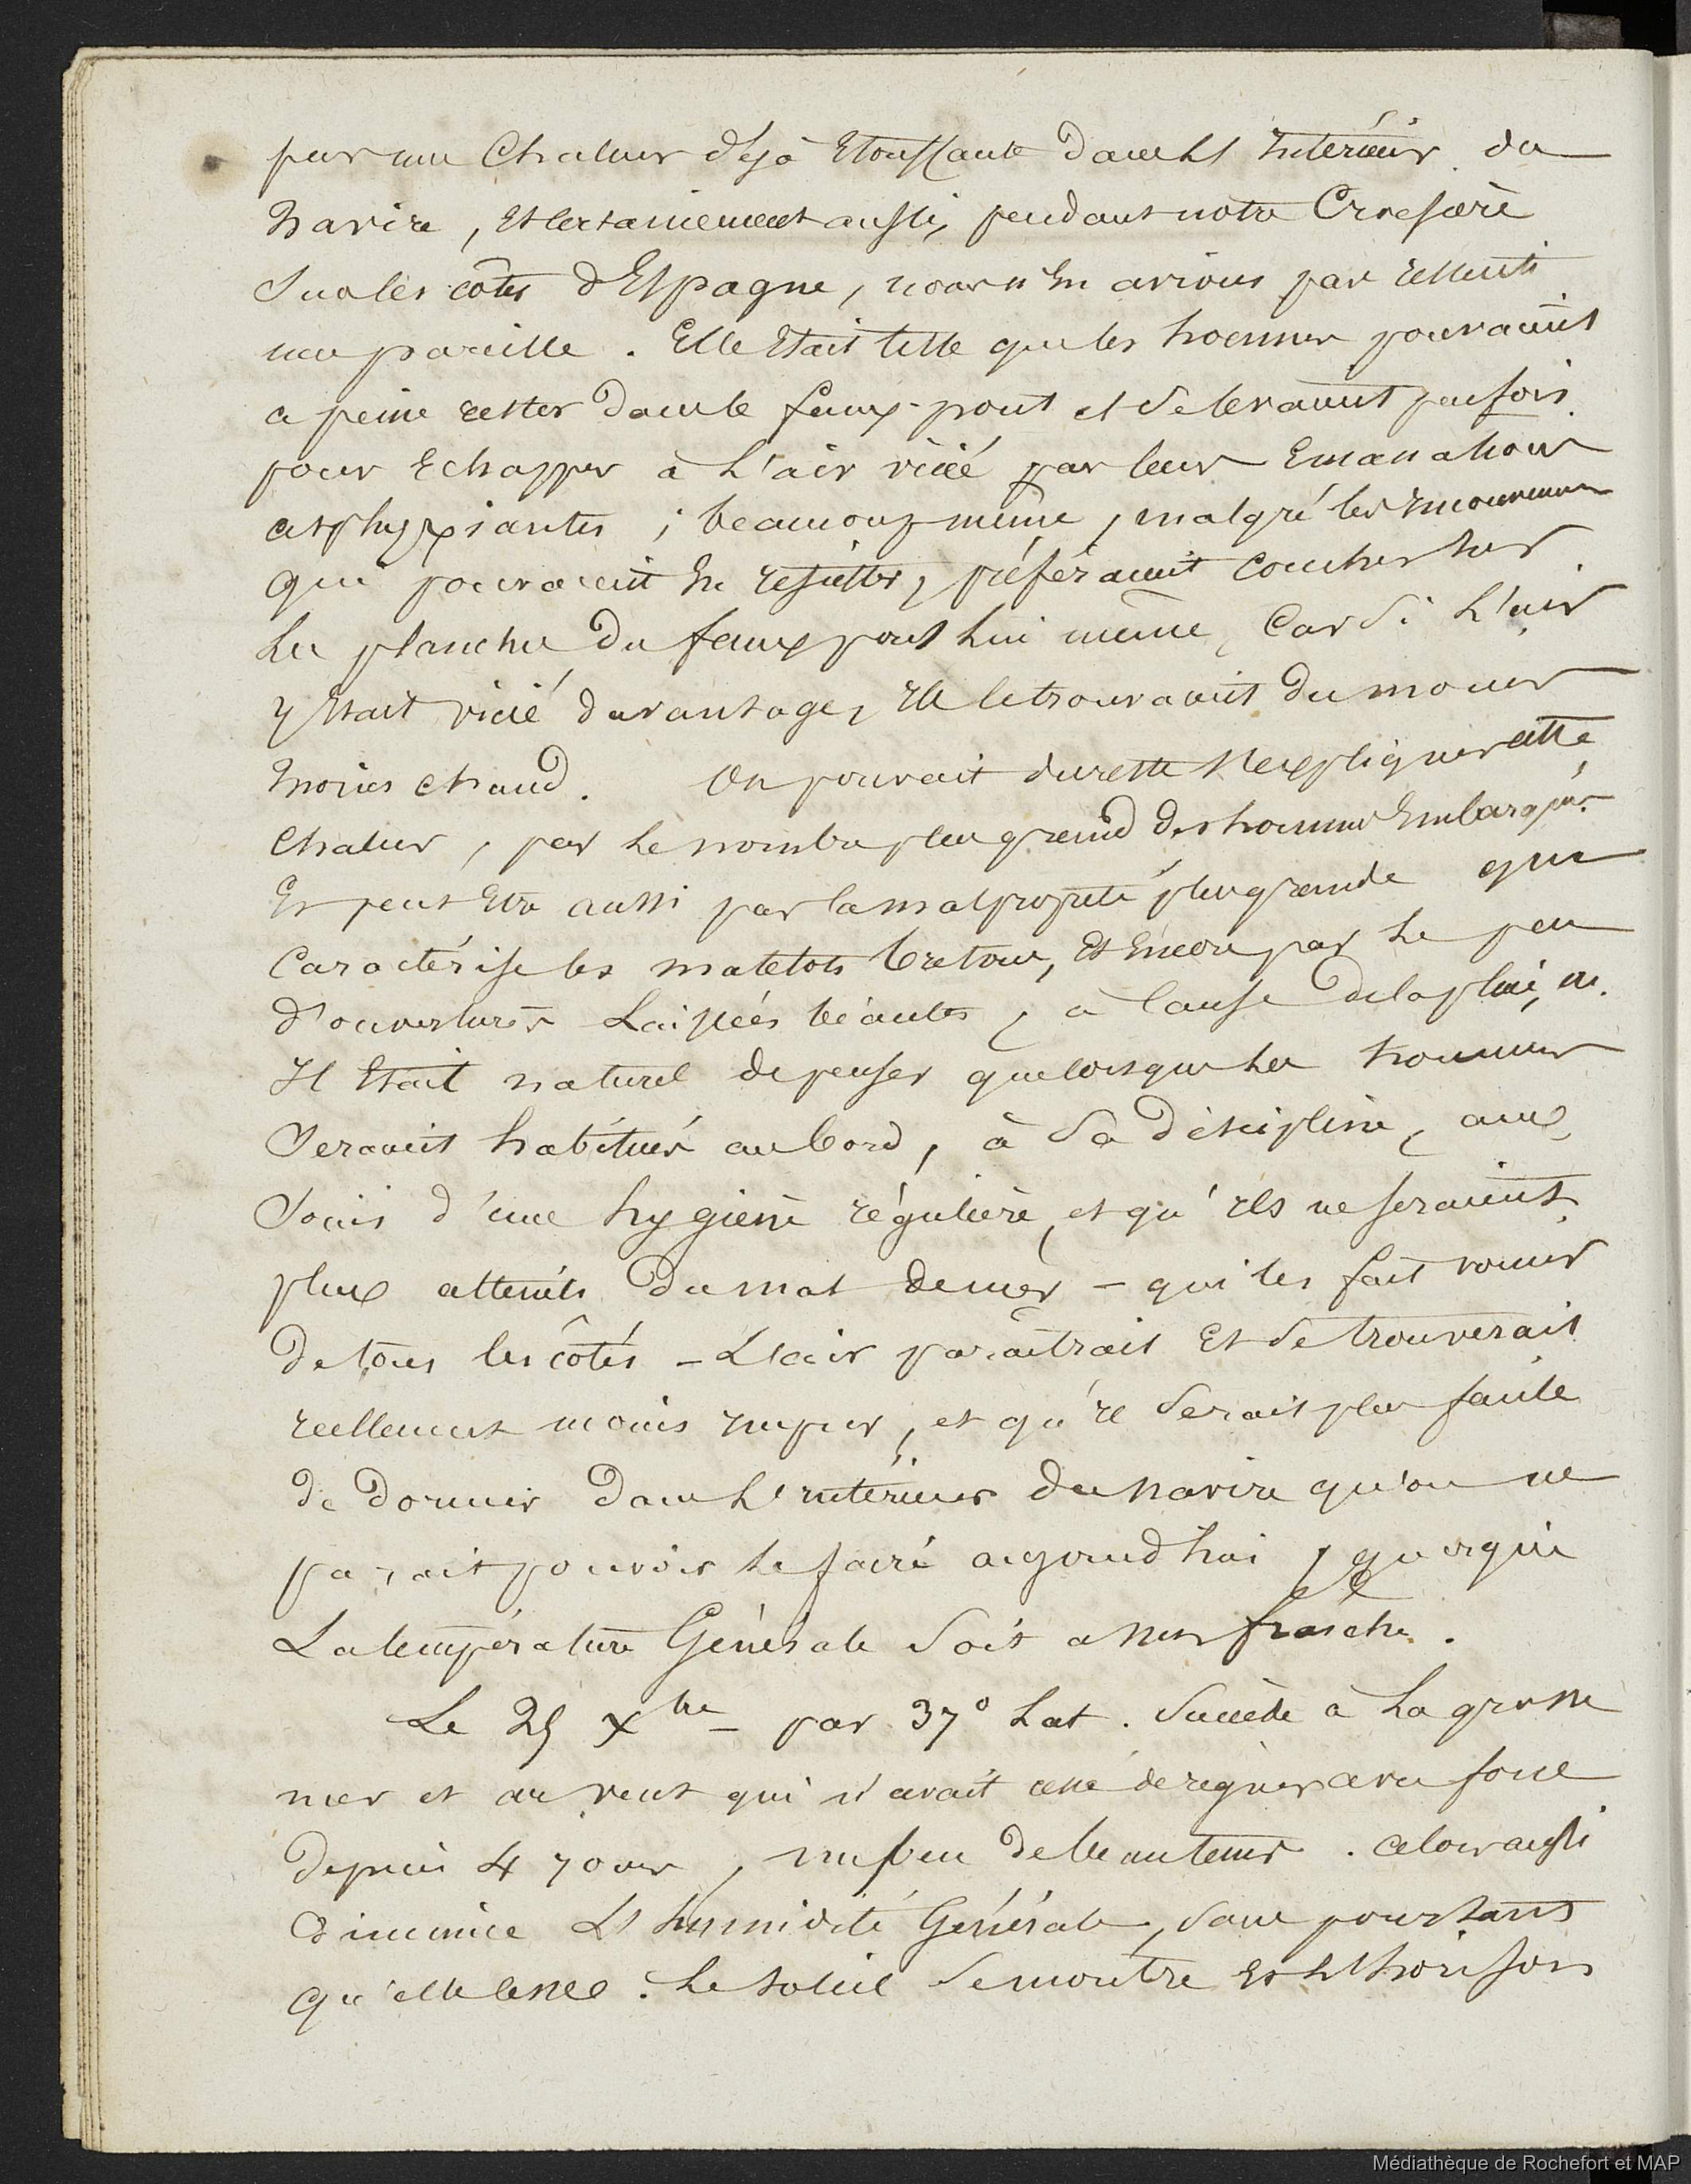 par une Chaleur déjà Etouffante dans l'Intérieur du
navire, Et certainement aussi, pendant notre Croisière
Sur les côtes d'Espagne, nous n'En avions pas ressenti
une pareille. Elle Etait telle que les hommes pouvaient
a peine rester dans le faux-pont et se levaient parfois
pour Echapper à L'air vicié par leurs Emanations
asphyxiantes ; beaucoup même, malgré les
qui pouvaient En resulter, préféraient coucher sur
Les planches du faux pont lui même, Car Si L'air
y Etait vicié davantage, Ils le trouvaient du moins
moins chaud. On pouvait du reste s'expliquer cette
Chaleur, par le nombre plus grand des hommes Embarqués
Et peut Etre aussi par la malpropreté plus grande que
Caractérise les matelots bretons, Et Encore par le peu
d'ouvertures Laissées béantes, à Cause de la pluie,
Il Etait naturel de penser que lorsque les hommes
Seraient habitués au bord, à Sa discipline, aux
Soins d'une hygiène régulière, et qu'ils ne seraient
plus atteints du mal de mer - qui les fait vomir
De tous les côtés - L'air paraîtrait Et Se trouverait
reellement moins impur, et qu'il Serait plus facile
de dormir dans L'intérieur du navire qu'on ne
parait pouvoir le faire aujourd'hui, quoique
La température Générale Soit assez fraîche.
Le 25 Xbre - par 37° Lat. Succède à La grosse
mer et au vent qui n'avait cessé de régner avec force
depuis 4 jours, un peu de beau temps. alors aussi
diminue L'humidité Générale, Sans pourtant
qu'elle cesse. Le Soleil Se montre Et L'horison